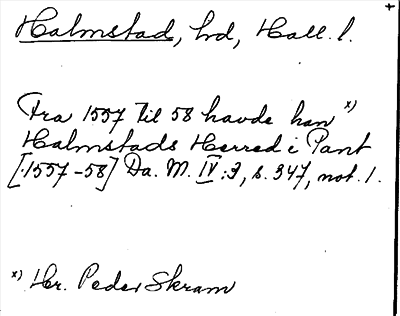 Halmstad, hrd, Hall. l.
Fra 1557 til 58 havde han x)
Halmstads Herred i Pant
[1557-58] Da. M. IV:3, s. 347, not. 1.
x) Hr. Peder Skram